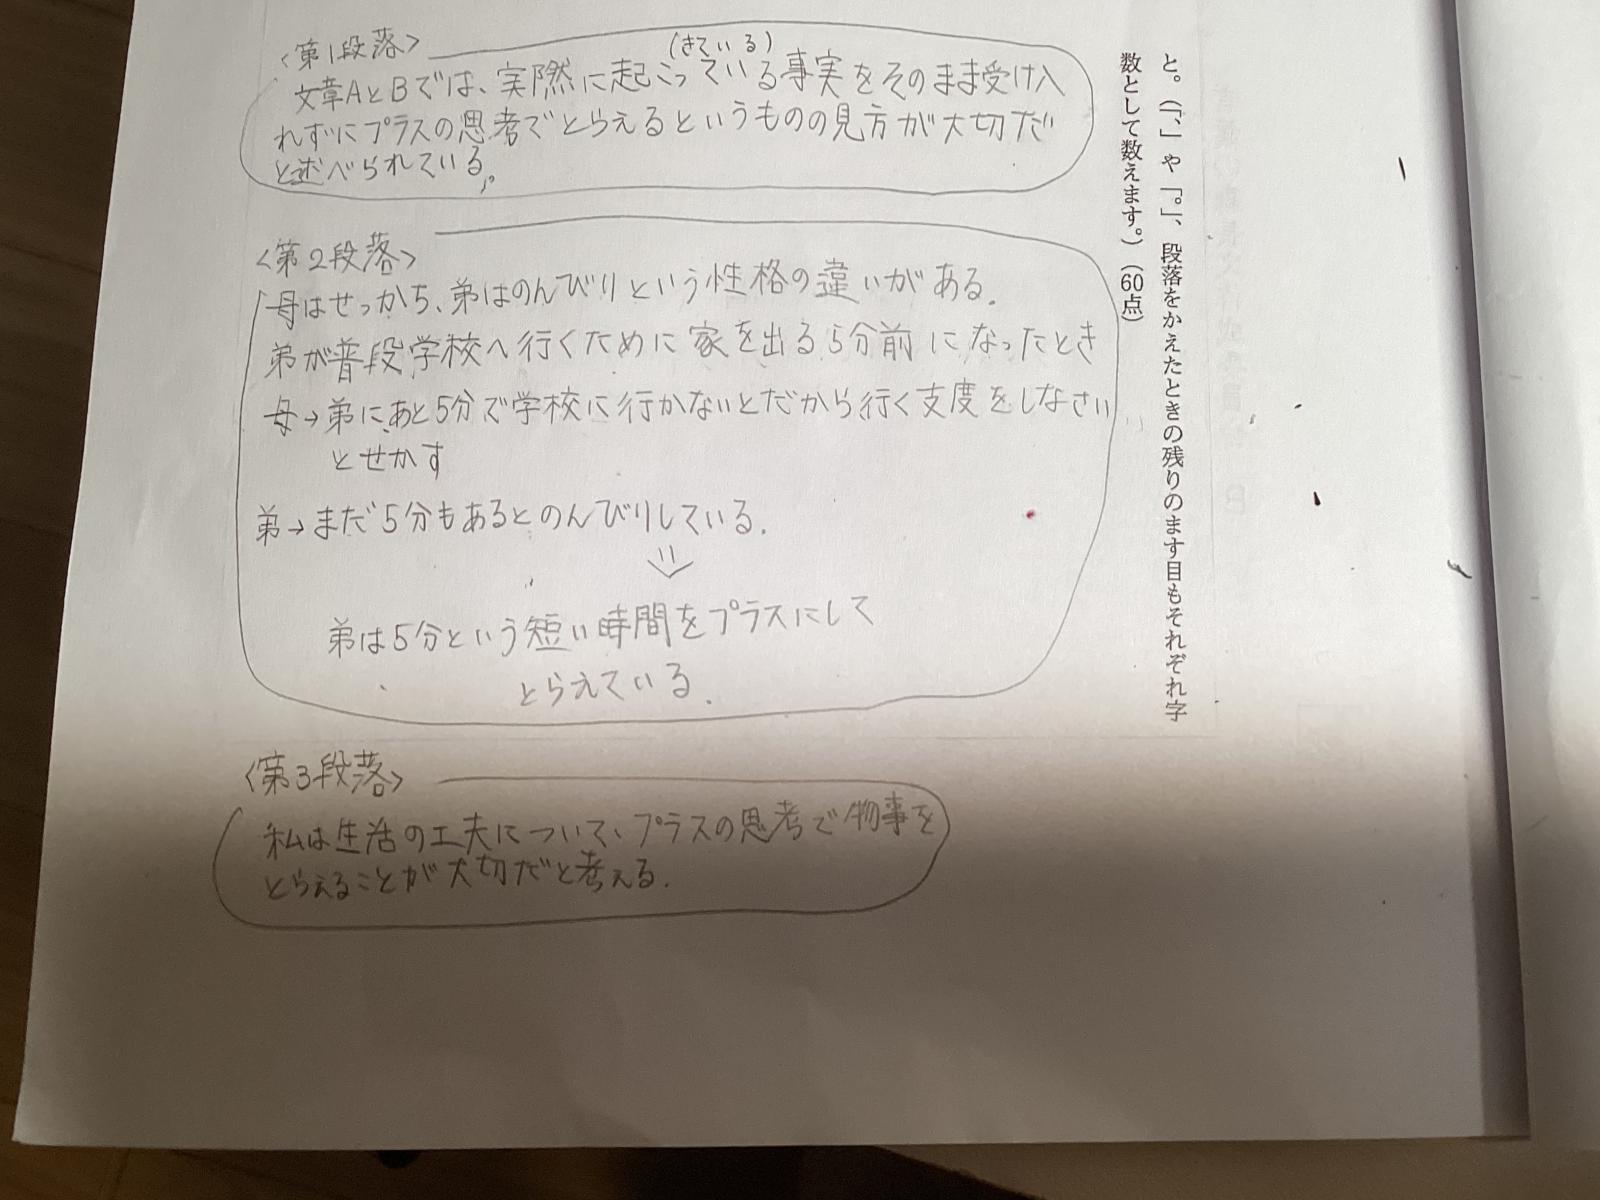 と。（「、」や「。」、段落をかえたときの残りのます目もそれぞれ字
数として数えます。）（60点）
<第1段落>
(きている)
文章AとBでは、実際に起こっている事実をそのまま受け入
れずにプラスの思考でとらえるというものの見方が大切だ
と述べられている。
<第2段落>
母はせっかち、弟はのんびりという性格の違いがある。
弟が普段学校へ行くために家を出る5分前になったとき
母→弟にあと5分で学校に行かないとだから行く支度をしなさい
とせかす
弟→まだ5分もあるとのんびりしている。
弟は5分という短い時間をプラスにして
とらえている。
<第3段落>
私は生活の工夫について、プラスの思考で物事を
とらえることが大切だと考える。